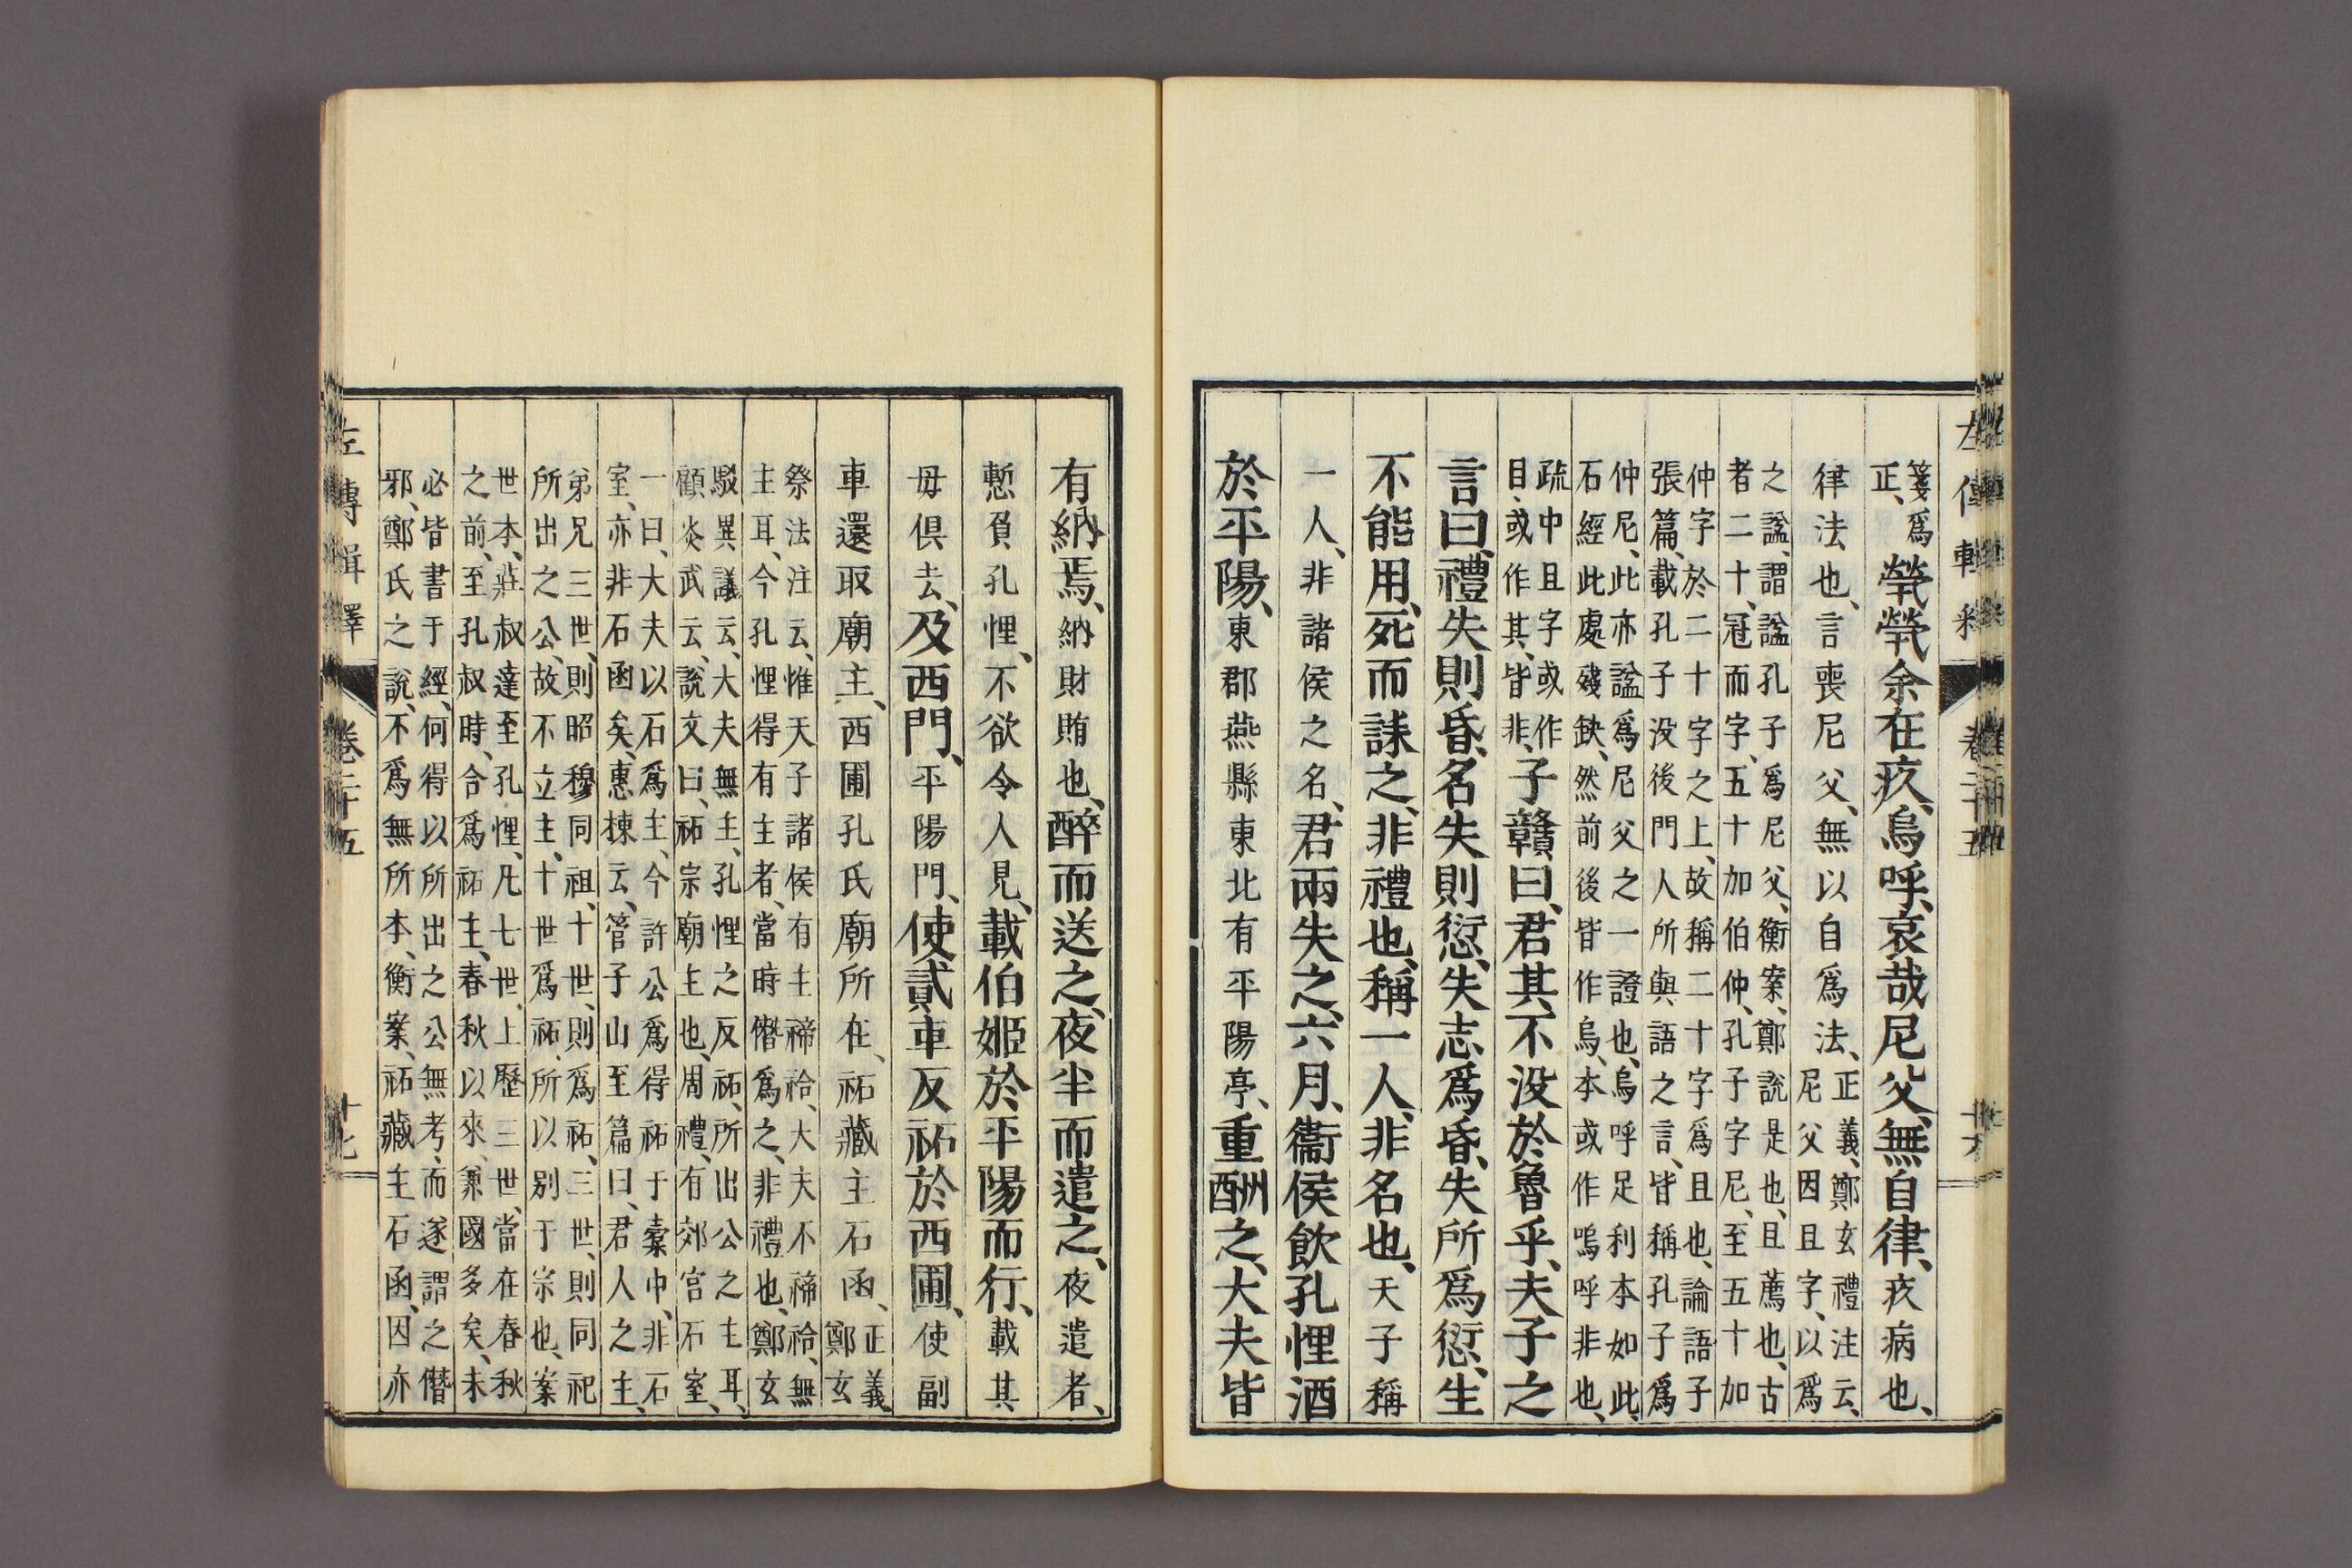 左傳輯釋 卷二十五 十六
箋爲
正、
煢煢余在疚、烏呼、哀哉尼父、無自律、疚病也、
律法也、言喪尼父、無以自爲法、
正義、鄭玄禮注云、
尼父因且字、以爲
之諡、謂諡孔子爲尼父、衡案、鄭說是也、且薦也、古
者二十、冠而字、五十加伯仲、孔子字尼、至五十加
仲字於二十字之上、故稱二十字爲且也、論語子
張篇、載孔子没後門人所與語之言、皆稱孔子爲
仲尼、此亦諡爲尼父之一證也、烏呼足利本如此、
石經此處殘缺、然前後皆作烏、本或作嗚呼非也、
疏中且字或作
目、或作其、皆非、
子贛曰、君其不没於魯乎、夫子之
言曰、禮失則昏、名失則愆、失志爲昏、失所爲愆、生
不能用、死而誄之、非禮也、稱一人、非名也、天子稱
一人、非諸侯之名、君兩失之、六月、衞侯飮孔悝酒
於平陽、東郡燕縣東北有平陽亭、重酬之、大夫皆
有納焉、納財賄也、醉而送之、夜半而遣之、夜遣者、
慙負孔悝、不欲令人見、載伯姬於平陽而行、載其
毋倶去、及西門、平陽門、使貳車反祏於西圃、使副
車還取廟主、西圃孔氏廟所在、祏藏主石函、
正義、
鄭玄
祭法注云、惟天子諸侯有主禘祫、大夫不禘祫、無
主耳、今孔悝得有主者、當時僭爲之、非禮也、鄭玄
駁異議云、大夫無主、孔悝之反祏、所出公之主耳、
顧炎武云、說文曰、祏宗廟主也、周禮、有郊宮石室、
一曰、大夫以石爲主、今許公爲得祏于橐中、非石
室、亦非石函矣、惠棟云、管子山至篇曰、君人之主、
弟兄三世、則昭穆同祖、十世、則爲祏、三世、則同祀
所出之公、故不立主、十世爲祏、所以別于宗也、案
世本、莊叔達至孔悝、凡七世、上歷三世、當在春秋
之前、至孔叔時、合爲祏主、春秋以來、兼國多矣、未
必皆書于經、何得以所出之公無考、而遂謂之僭
邪、鄭氏之說、不爲無所本、衡案、祏藏主石函、因亦
左傳輯釋 卷二十五 十七